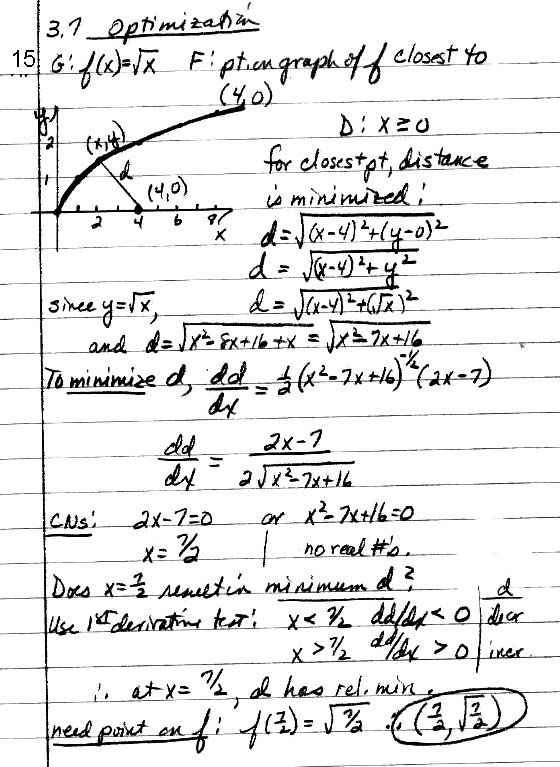 3.7 Optimization
15 G: f(x)=√x F: pt. on graph of f closest to
(4,0)
y
(x,y)
D: x ≥ 0
2
for closest pt, distance
1
d
(4,0)
is minimized:
2 4 6 8
x
d = √((x-4)²+(y-0)²)
d = √((x-4)²+y²)
since y=√x, d = √((x-4)²+(√x)²)
and d = √(x²-8x+16+x) = √(x²-7x+16)
To minimize d, dd/dx = ½(x²-7x+16)^(-1/2) (2x-7)
dd/dx = (2x-7)/(2√(x²-7x+16))
CNs: 2x-7=0 or x²-7x+16=0
x = 7/2 | no real #'s.
Does x=7/2 result in minimum d? d
Use 1st derivative test: x < 7/2 dd/dx < 0 | decr
x > 7/2 dd/dx > 0 | incr
∴ at x = 7/2, d has rel. min.
need point on f: f(7/2) = √(7/2) ∴ (7/2, √(7/2))